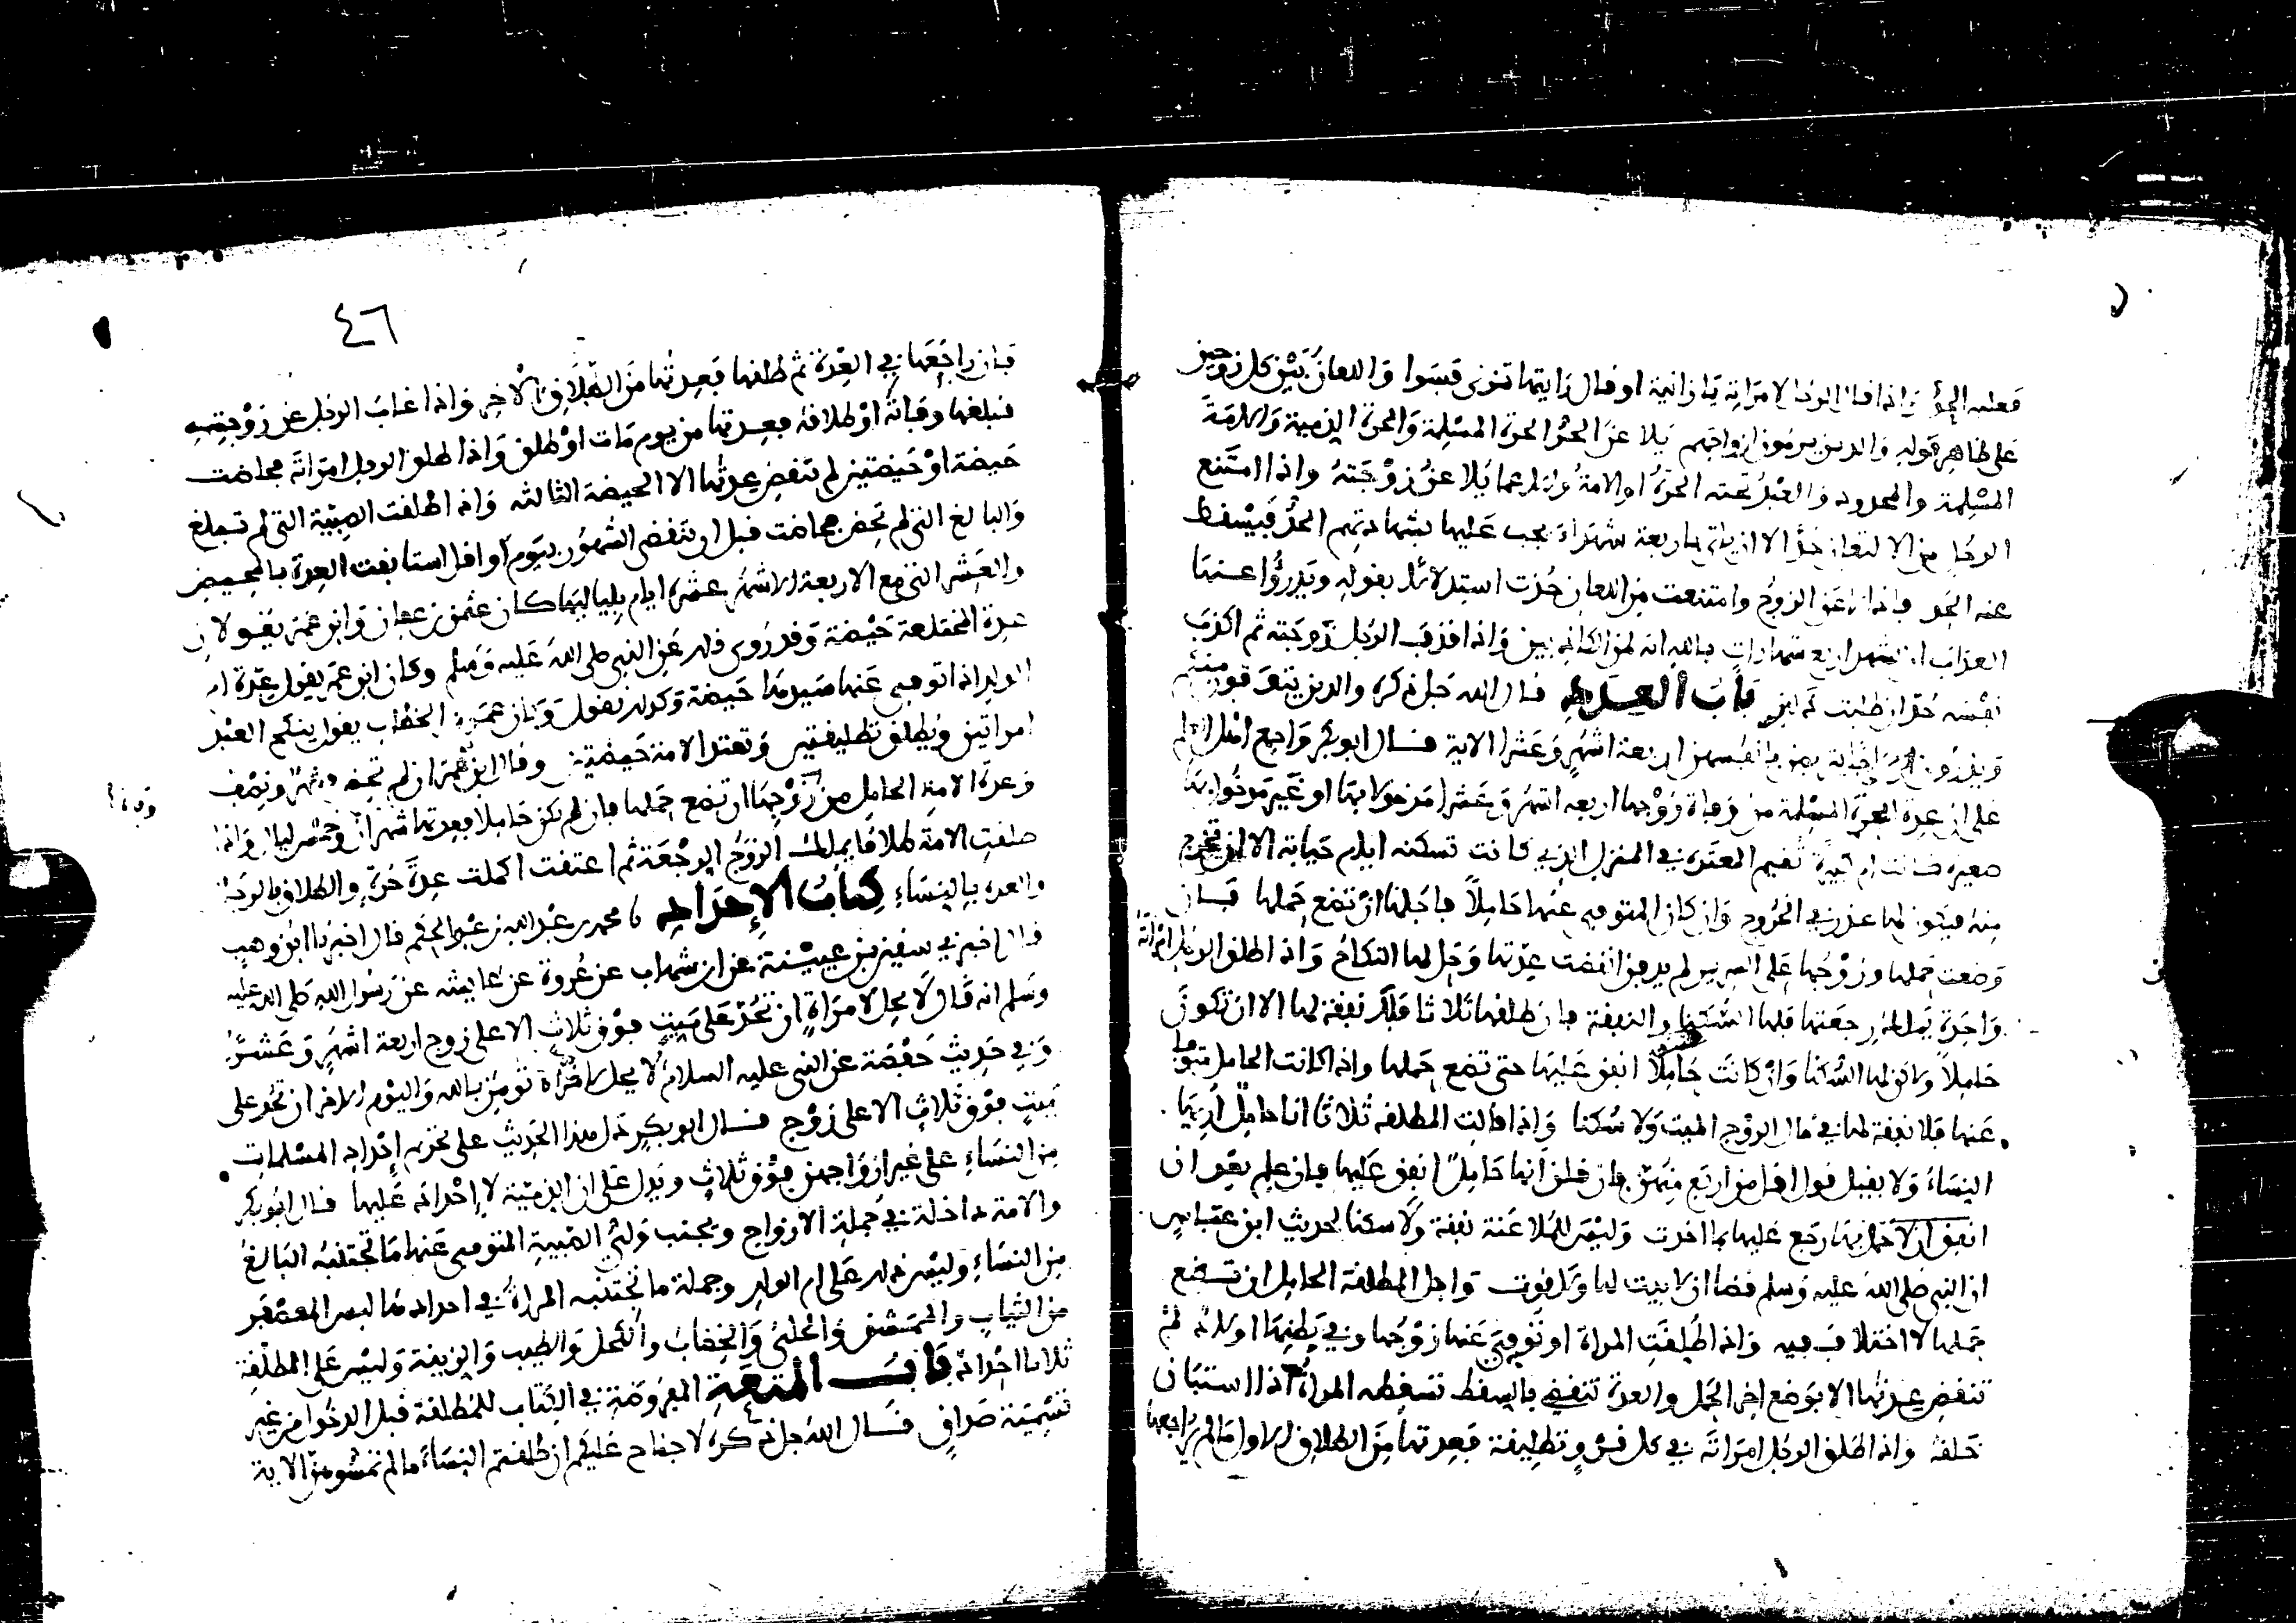 فعليه الحد واذا قال الرجل لامراته يا زانية او قال رايتها تزني فسوا واللعان بين كل زوجين
على ظاهر قوله والذين يرمون ازواجهم يلاعن الحر الحرة المسلمة والحرة الذمية والامة
المسلمة والمحدود والعبد تحته الحرة او الامة والاعما يلاعن زوجته واذا امتنع
الرجل من الالتعان حد الا ان ياتي باربعة شهداء يجب عليها بشهادتهم الحد فيسقط
عنه الحد فاذا لاعن الزوج وامتنعت من اللعان حدت استدلالا بقوله ويدرؤا عنها
العذاب ان تشهد اربع شهادات بالله انه لمن الكاذبين واذا قذف الرجل زوجته ثم اكذب
نفسه حد ان طلبت باب العدد قال الله جل ذكره والذين يتوفون منكم
ويذرون ازواجا يتربصن بانفسهن اربعة اشهر وعشرا الاية قال ابو بكر واجمع اهل العلم
على ان عدة الحرة المسلمة من وفاة زوجها اربعة اشهر وعشرا مدخولا بها او غير مدخول بها
صغيرة كانت ام كبيرة تقيم المعتدة في المنزل الذي كانت تسكنه ايام حياته الا ان تخرج
منه فيكون لها عذر في الخروج وان كان المتوفى عنها حاملا فاجلها ان تضع حملها فان
وضعت حملها وزوجها على السرير لم يدفن انقضت عدتها وحل لها النكاح واذا طلق الرجل امراته
واحدة يملك رجعتها فلها السكنا والنفقة فان طلقها ثلاثا فلا نفقة لها الا ان تكون
حاملا ولا لها السكنا وان كانت حاملا انفق عليها حتى تضع حملها واذا كانت الحامل متوفا
عنها فلا نفقة لها في مال الزوج الميت ولا سكنا واذا قالت المطلقة ثلاثا انا حامل اريها
النساء ولا يقبل قول اقل من اربع منهن فان قلن انها حامل انفق عليها فان علم بعد ان
انفق ان لا حمل بها رجع عليها بما اخذت وليس للملاعنة نفقة ولا سكنا لحديث ابن عباس
ان النبي صلى الله عليه وسلم قضا ان لا بيت لها ولا قوت واجل المطلقة الحامل ان تضع
حملها لا اختلاف فيه واذا طلقت المراة او توفي عنها زوجها وفي بطنها اولاد لم
تنقض عدتها الا بوضع اخر الحمل والعدة تنقضي بالسقط تسقطه المراة اذا استبان
خلقه واذا طلق الرجل امراته في كل قرو تطليقة فعدتها من الطلاق الاول ما لم يراجعها
٤٦
فان راجعها في العدة ثم طلقها فعدتها من الطلاق الاخر واذا غاب الرجل عن زوجته
فبلغها وفاته او طلاقه فعدتها من يوم مات او طلق واذا طلق الرجل امراته فحاضت
حيضة او حيضتين لم تنقض عدتها الا الحيضة الثالثة واذا طلقت الصبية التي لم تبلغ
والبالغ التي لم تحض فحاضت قبل ان تنقضي الشهور بيوم او اقل استانفت العدة بالحيض
والعشر التي مع الاربعة الاشهر عشرة ايام بلياليها كان عثمن بن عفان وابن عمر يقولان
عدة المختلعة حيضة وقد روي ذلك عن النبي صلى الله عليه وسلم وكان ابن عمر يقول عدة ام
الولد اذا توفي عنها سيدها حيضة وكذلك نقول وكان عمر بن الخطاب يقول ينكح العبد
امراتين ويطلق تطليقتين وتعتد الامة حيضتين وقال ابن عمر ان لم تحض فشهرا ونصف
وعدة الامة الحامل من زوجها ان تضع حملها فان لم تكن حاملا فعدتها شهران وخمس ليال واذا
طلقت الامة طلاقا يملك الزوج الرجعة ثم اعتقت اكملت عدة حرة والطلاق بالرجال
والعدة بالنساء كتاب الإحداد نا محمد بن عبد الله بن عبد الحكم قال اخبرنا ابن وهب
قال اخبرني سفين بن عيينة عن ابن شهاب عن عروة عن عائشة عن رسول الله صلى الله عليه
وسلم انه قال لا يحل لامراة ان تحد على ميت فوق ثلاث الا على زوج اربعة اشهر وعشرا
وفي حديث حفصة عن النبي عليه السلام لا يحل لامراة تومن بالله واليوم الاخر ان تحد على
ميت فوق ثلاث الا على زوج قال ابو بكر دل هذا الحديث على تحريم إحداد المسلمات
من النساء على غير ازواجهن فوق ثلاث ويدل على ان الذمية لا إحداد عليها قال ابو بكر
والامة داخلة في جملة الازواج ويجنب ولي الصبية المتوفى عنها ما تجتنبه البالغ
من النساء وليس ذلك على ام الولد وجملة ما تجتنبه المراة في احدادها لبس المعصفر
من الثياب والممشق والحلي والخضاب والكحل والطيب والزينة وليس على المطلقة
ثلاثا احداد باب المتعة المفروضة في الكتاب للمطلقة قبل الدخول من غير
تسمية صداق قال الله جل ذكره لا جناح عليكم ان طلقتم النساء ما لم تمسوهن الاية